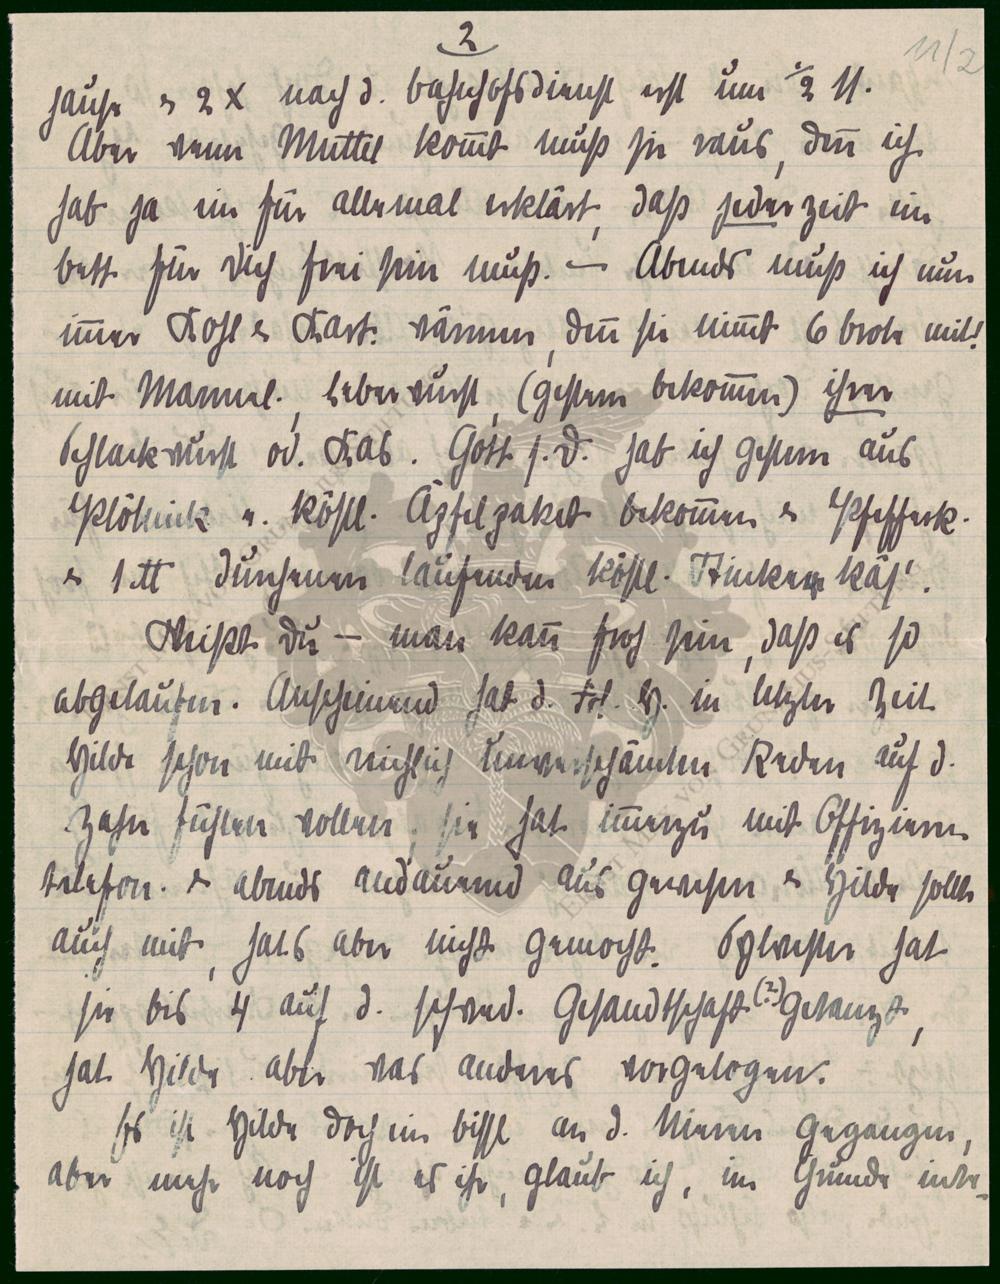 2
11/2
hause & 2 x nach d. bahnhofsdienst erst um ½ 11.
Aber wenn Muttel kom̅t muß sie raus, den̅ ich
hab ja ein für allemal erklärt, daß jederzeit ein
bett für Dich frei sein muß. — Abends muß ich nun
im̅er Kohl & Kart. wärmen, den̅ sie nim̅t 6 brote mit!
mit Marmel., Leberwurst, (gestern bekom̅en) ihrer
Schlackwurst od. Käs. Gott s. D. hab ich gestern aus
köstl. Äpfelpaket bekom̅en & Pfefferk.
& 1 tt laufenden köstl. käs'.
Weißt Du — man kan̅ froh sein, daß es so
abgelaufen. Anscheinend hat d. Frl. H. in letzter Zeit
Hilde schon mit reichlich unverschämten Reden auf d.
Zahn fühlen wollen, sie hat im̅erzu mit Offizieren
telefon. & abends andauernd aus gewesen & Hilde sollte
auch mit, hats aber nicht gemocht. Sylvester hat
sie bis 4 auf d. schwed. Gesandtschaft (?) getanzt,
hat Hilde aber was anderes vorgelogen.
Es ist Hilde doch ein bissl an d. Nieren gegangen,
aber mehr noch ist es ihr, glaub ich, im Grunde inte-